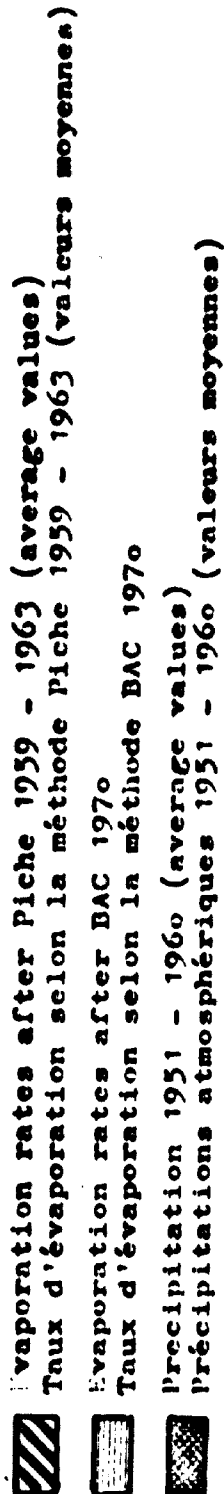 Evaporation rates after Piche 1959 - 1963 (average values)
Taux d'évaporation selon la méthode Piche 1959 - 1963 (valeurs moyennes)
Evaporation rates after BAC 1970
Taux d'évaporation selon la méthode BAC 1970
Precipitation 1951 - 1960 (average values)
Précipitations atmosphériques 1951 - 1960 (valeurs moyennes)